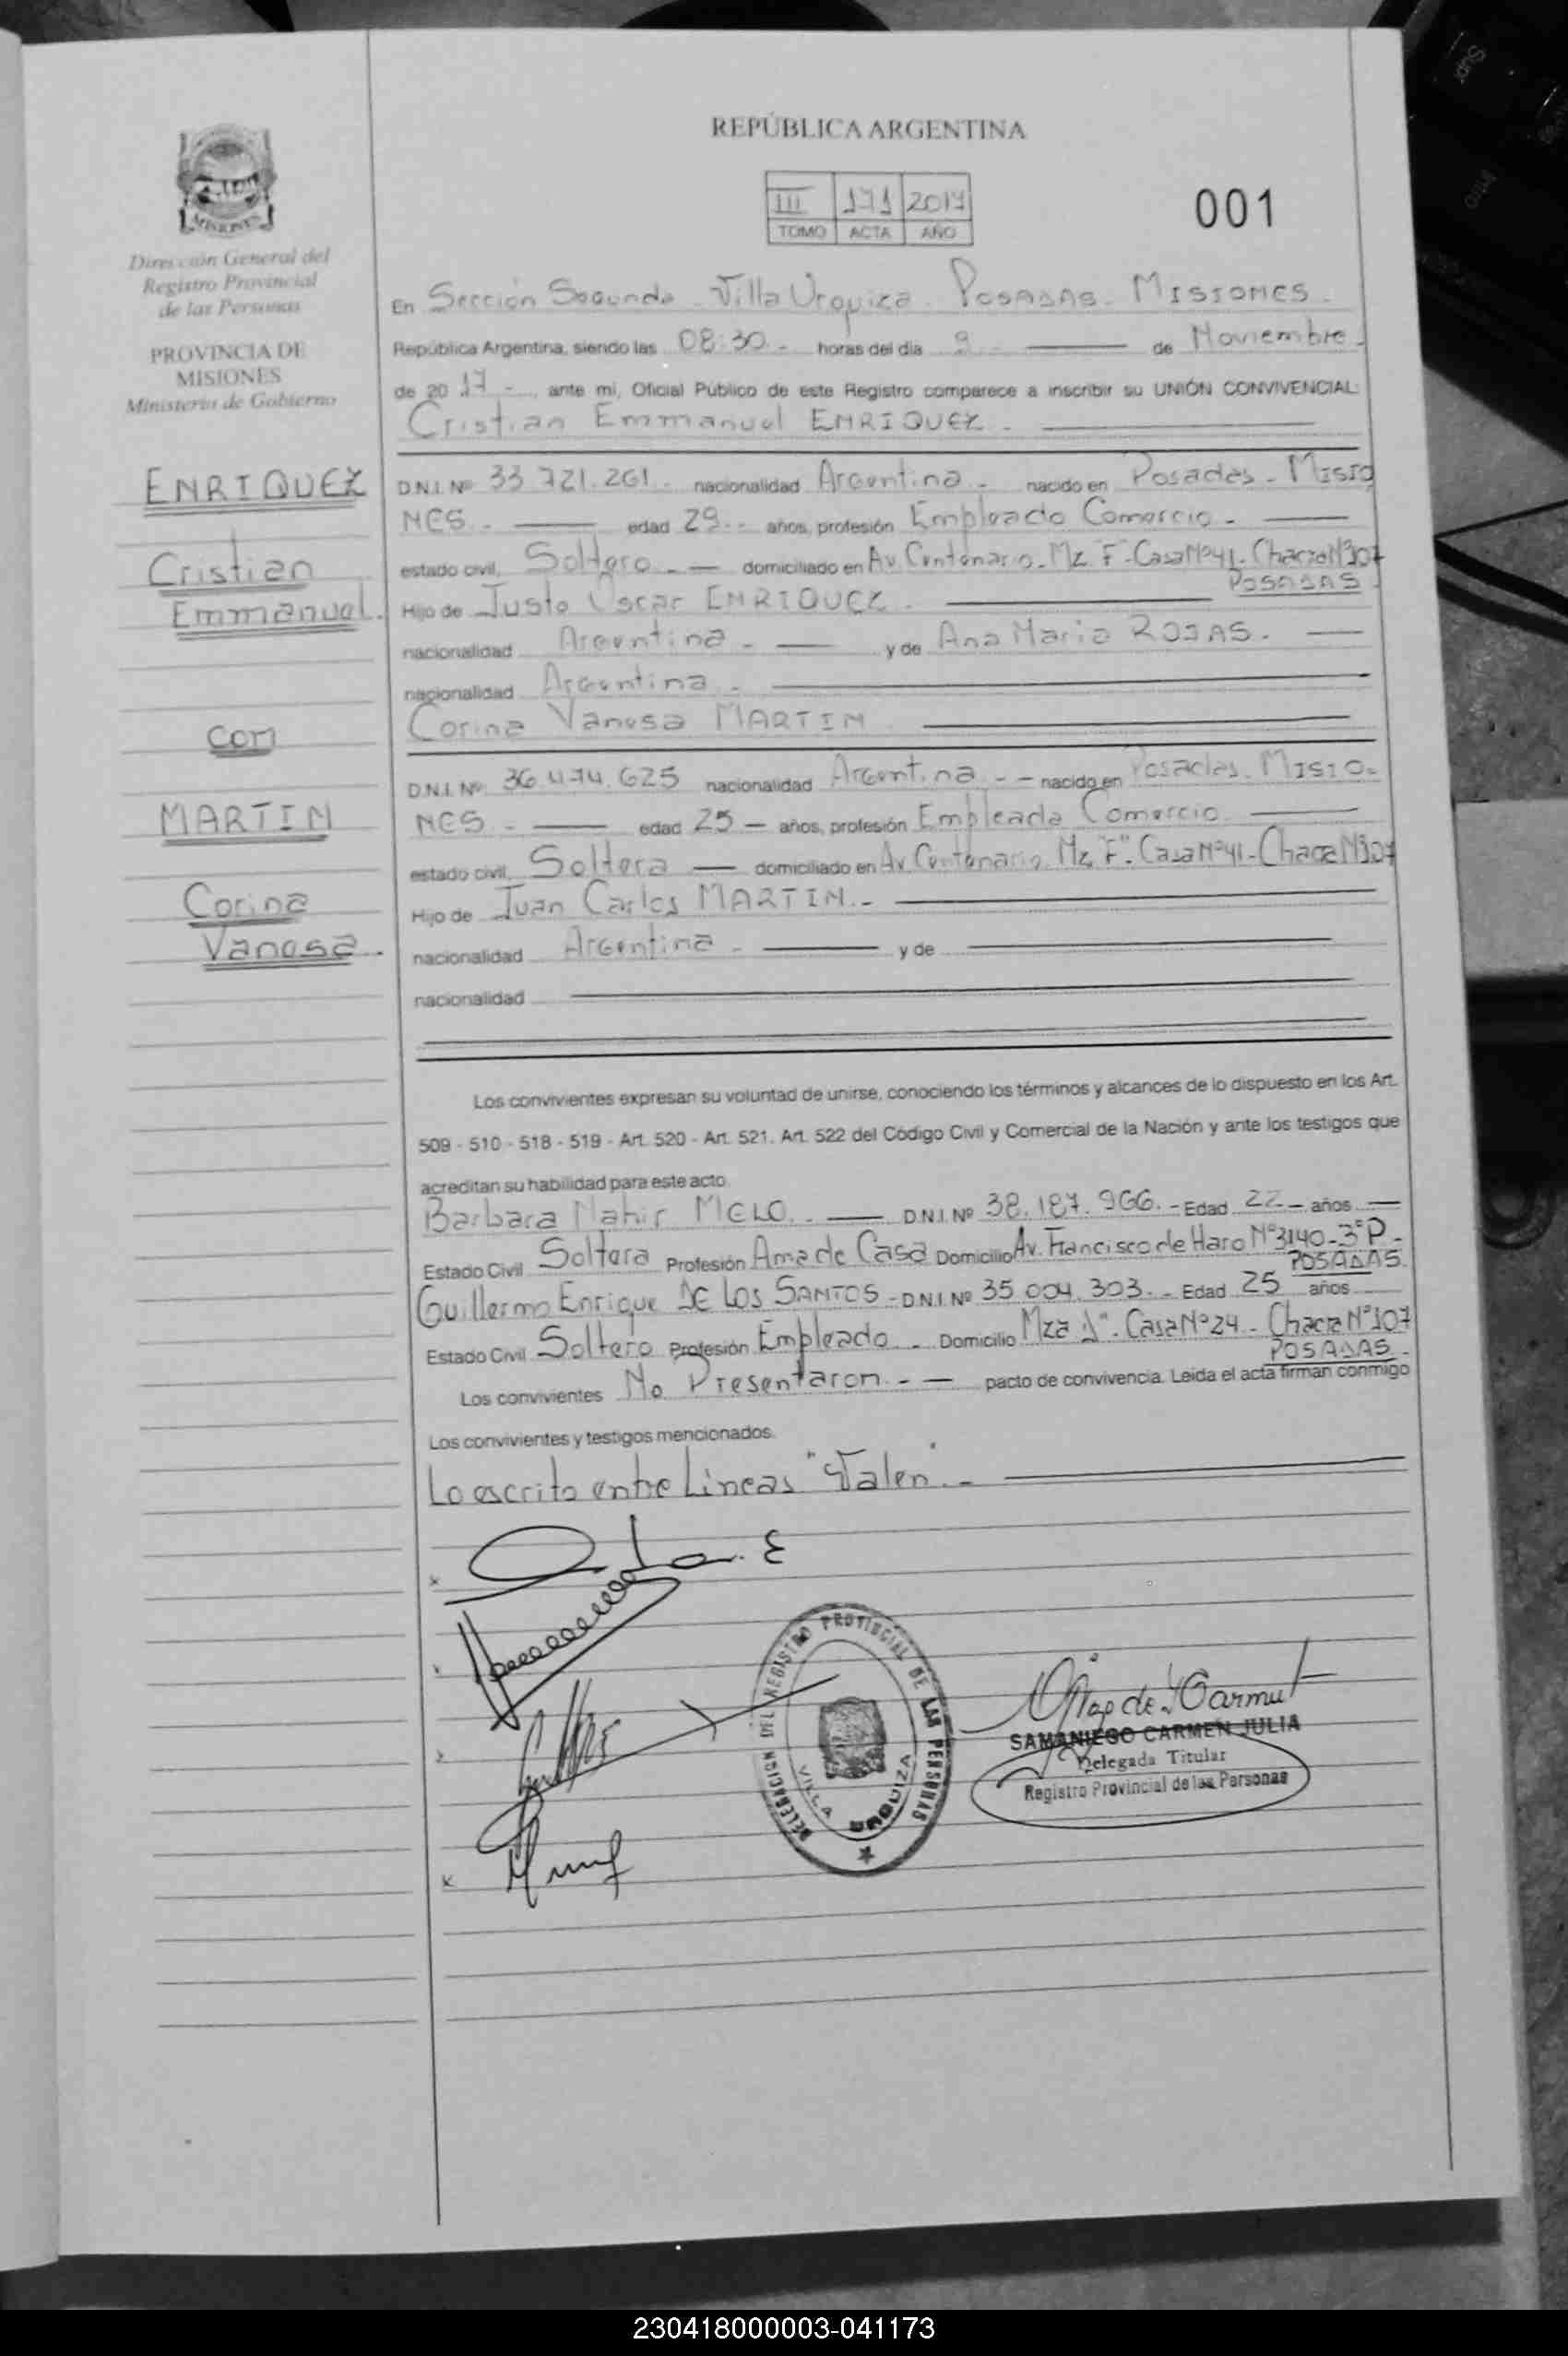 REPÚBLICA ARGENTINA
III 171 2017
TOMO ACTA AÑO
001
MISIONES
Dirección General del
Registro Provincial
de las Personas
PROVINCIA DE
MISIONES
Ministerio de Gobierno
ENRIQUEZ
Cristian
Emmanuel.
con
MARTIN
Corina
Vanesa.
En Sección Segunda - Villa Urquiza - POSADAS - MISIONES -
República Argentina, siendo las 08:30 - horas del día 9 - de Noviembre -
de 2017 -, ante mí, Oficial Público de este Registro comparece a inscribir su UNIÓN CONVIVENCIAL:
Cristian Emmanuel ENRIQUEZ -
D.N.I. Nº 33.721.261 - nacionalidad Argentina - nacido en Posadas - Misio
NES - edad 29 - años, profesión Empleado Comercio -
estado civil, Soltero - domiciliado en Av. Centenario - Mz. "F" - Casa Nº 41 - Chacra Nº 107
POSADAS -
Hijo de Justo Oscar ENRIQUEZ -
nacionalidad Argentina - y de Ana Maria ROJAS -
nacionalidad Argentina -
Corina Vanesa MARTIN
D.N.I. Nº 36.474.625 nacionalidad Argentina - - nacido en Posadas - MISIO-
NES - edad 25 - años, profesión Empleada Comercio
estado civil, Soltera - domiciliado en Av. Centenario Mz. "F" - Casa Nº 41 - Chacra Nº 107
Hijo de Juan Carlos MARTIN -
nacionalidad Argentina - y de
nacionalidad
Los convivientes expresan su voluntad de unirse, conociendo los términos y alcances de lo dispuesto en los Art.
509 - 510 - 518 - 519 - Art. 520 - Art. 521. Art. 522 del Código Civil y Comercial de la Nación y ante los testigos que
acreditan su habilidad para este acto.
Barbara Nahir MELO - D.N.I. Nº 38.187.966 - Edad 22 - años -
Estado Civil Soltera Profesión Ama de Casa Domicilio Av. Francisco de Haro Nº 3140 - 3° P -
POSADAS.
Guillermo Enrique DE LOS SANTOS - D.N.I. Nº 35.004.303 - Edad 25 años
Estado Civil Soltero Profesión Empleado - Domicilio Mza - Casa Nº 24 - Chacra Nº 107
POSADAS -
Los convivientes No Presentaron - - pacto de convivencia. Leída el acta firman conmigo
Los convivientes y testigos mencionados.
Lo escrito entre Líneas "Valen" -
DELEGACION DEL REGISTRO PROVINCIAL DE LAS PERSONAS
VILLA URQUIZA
SAMANIEGO CARMEN JULIA
Delegada Titular
Registro Provincial de las Personas
230418000003-041173